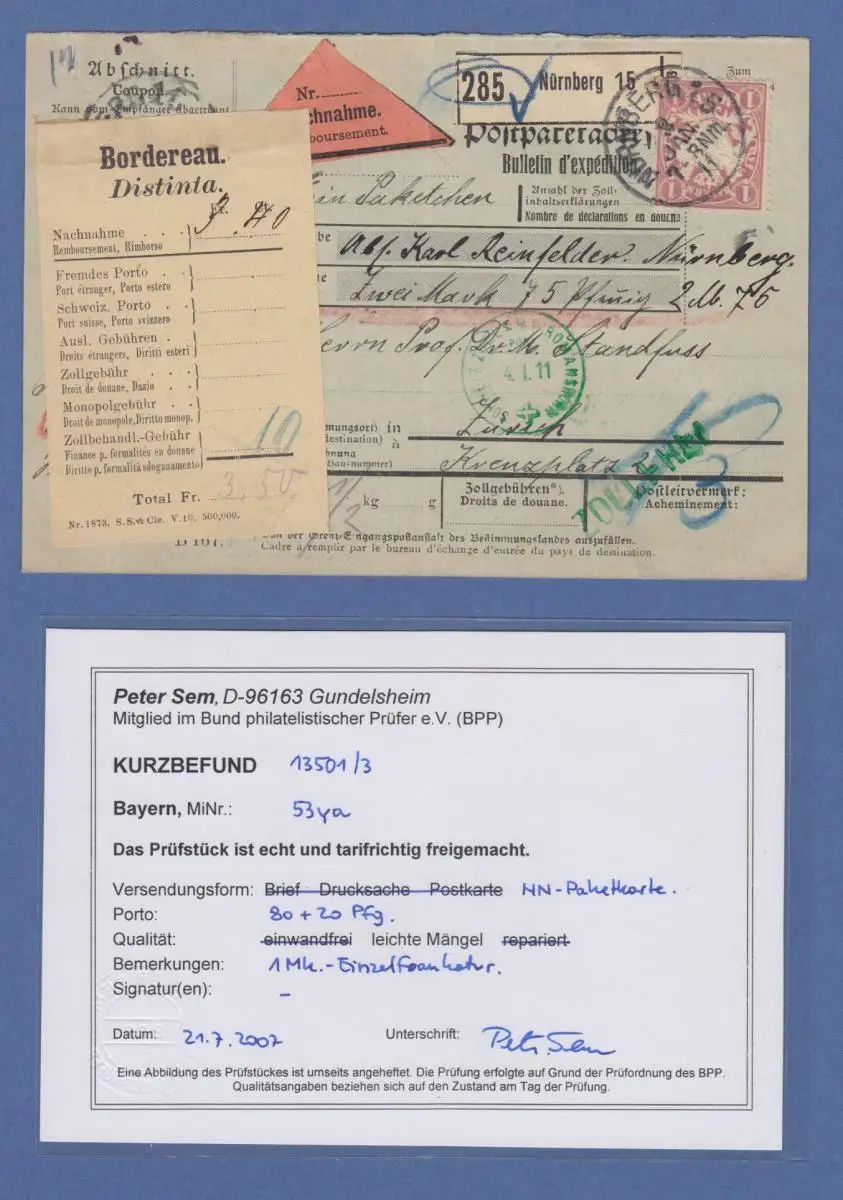 Abschnitt.
Coupon.
Kann vom Empfänger abgetrennt
Nr.
chnahme.
boursement.
285 Nürnberg 15
Zum
NÜRNBERG 15
JAN
11
1
1
Postpaketadre
Bulletin d'expédition
Anzahl der Zoll-
inhaltserklärungen
Nombre de déclarations en douane
ein Paketchen
be
Abs. Karl Reinfelder. Nürnberg.
e
Zwei Mark 75 Pfennig 2 M. 75
Herrn Prof. Dr. M. Standfuss
4. I. 11
mmungsort) in
destination) à
Zürich
hnung
Hausnummer)
Kreuzplatz 2
kg
g
Zollgebühren*).
Droits de douane.
ZOLLFREI
Postleitvermerk:
Acheminement:
B 107.
Von der Grenz-Eingangspostanstalt des Bestimmungslandes auszufüllen.
Cadre à remplir par le bureau d'échange d'entrée du pays de destination.
Bordereau.
Distinta.
Fr.
Nachnahme . . .
Remboursement, Rimborso
3.40
Fremdes Porto . .
Port étranger, Porto estero
Schweiz. Porto . .
Port suisse, Porto svizzero
Ausl. Gebühren . .
Droits étrangers, Diritti esteri
Zollgebühr . . .
Droit de douane, Dazio . .
Monopolgebühr . .
Droit de monopole, Diritto monop.
Zollbehandl.-Gebühr
Finance p. formalités en douane
Diritto p. formalità sdoganamento
10
Total Fr. 3.50
Nr. 1873. S. S. & Cie. V. 10. 500,000.
Peter Sem, D-96163 Gundelsheim
Mitglied im Bund philatelistischer Prüfer e.V. (BPP)
KURZBEFUND 13501/3
Bayern, MiNr.: 53ya
Das Prüfstück ist echt und tarifrichtig freigemacht.
Versendungsform: Brief Drucksache Postkarte NN-Paketkarte.
Porto: 80 + 20 Pfg.
Qualität: einwandfrei leichte Mängel repariert
Bemerkungen: 1 Mk.-Einzelfrankatur.
Signatur(en): –
Datum: 21.7.2007 Unterschrift: Peter Sem
Eine Abbildung des Prüfstückes ist umseits angeheftet. Die Prüfung erfolgte auf Grund der Prüfordnung des BPP.
Qualitätsangaben beziehen sich auf den Zustand am Tag der Prüfung.